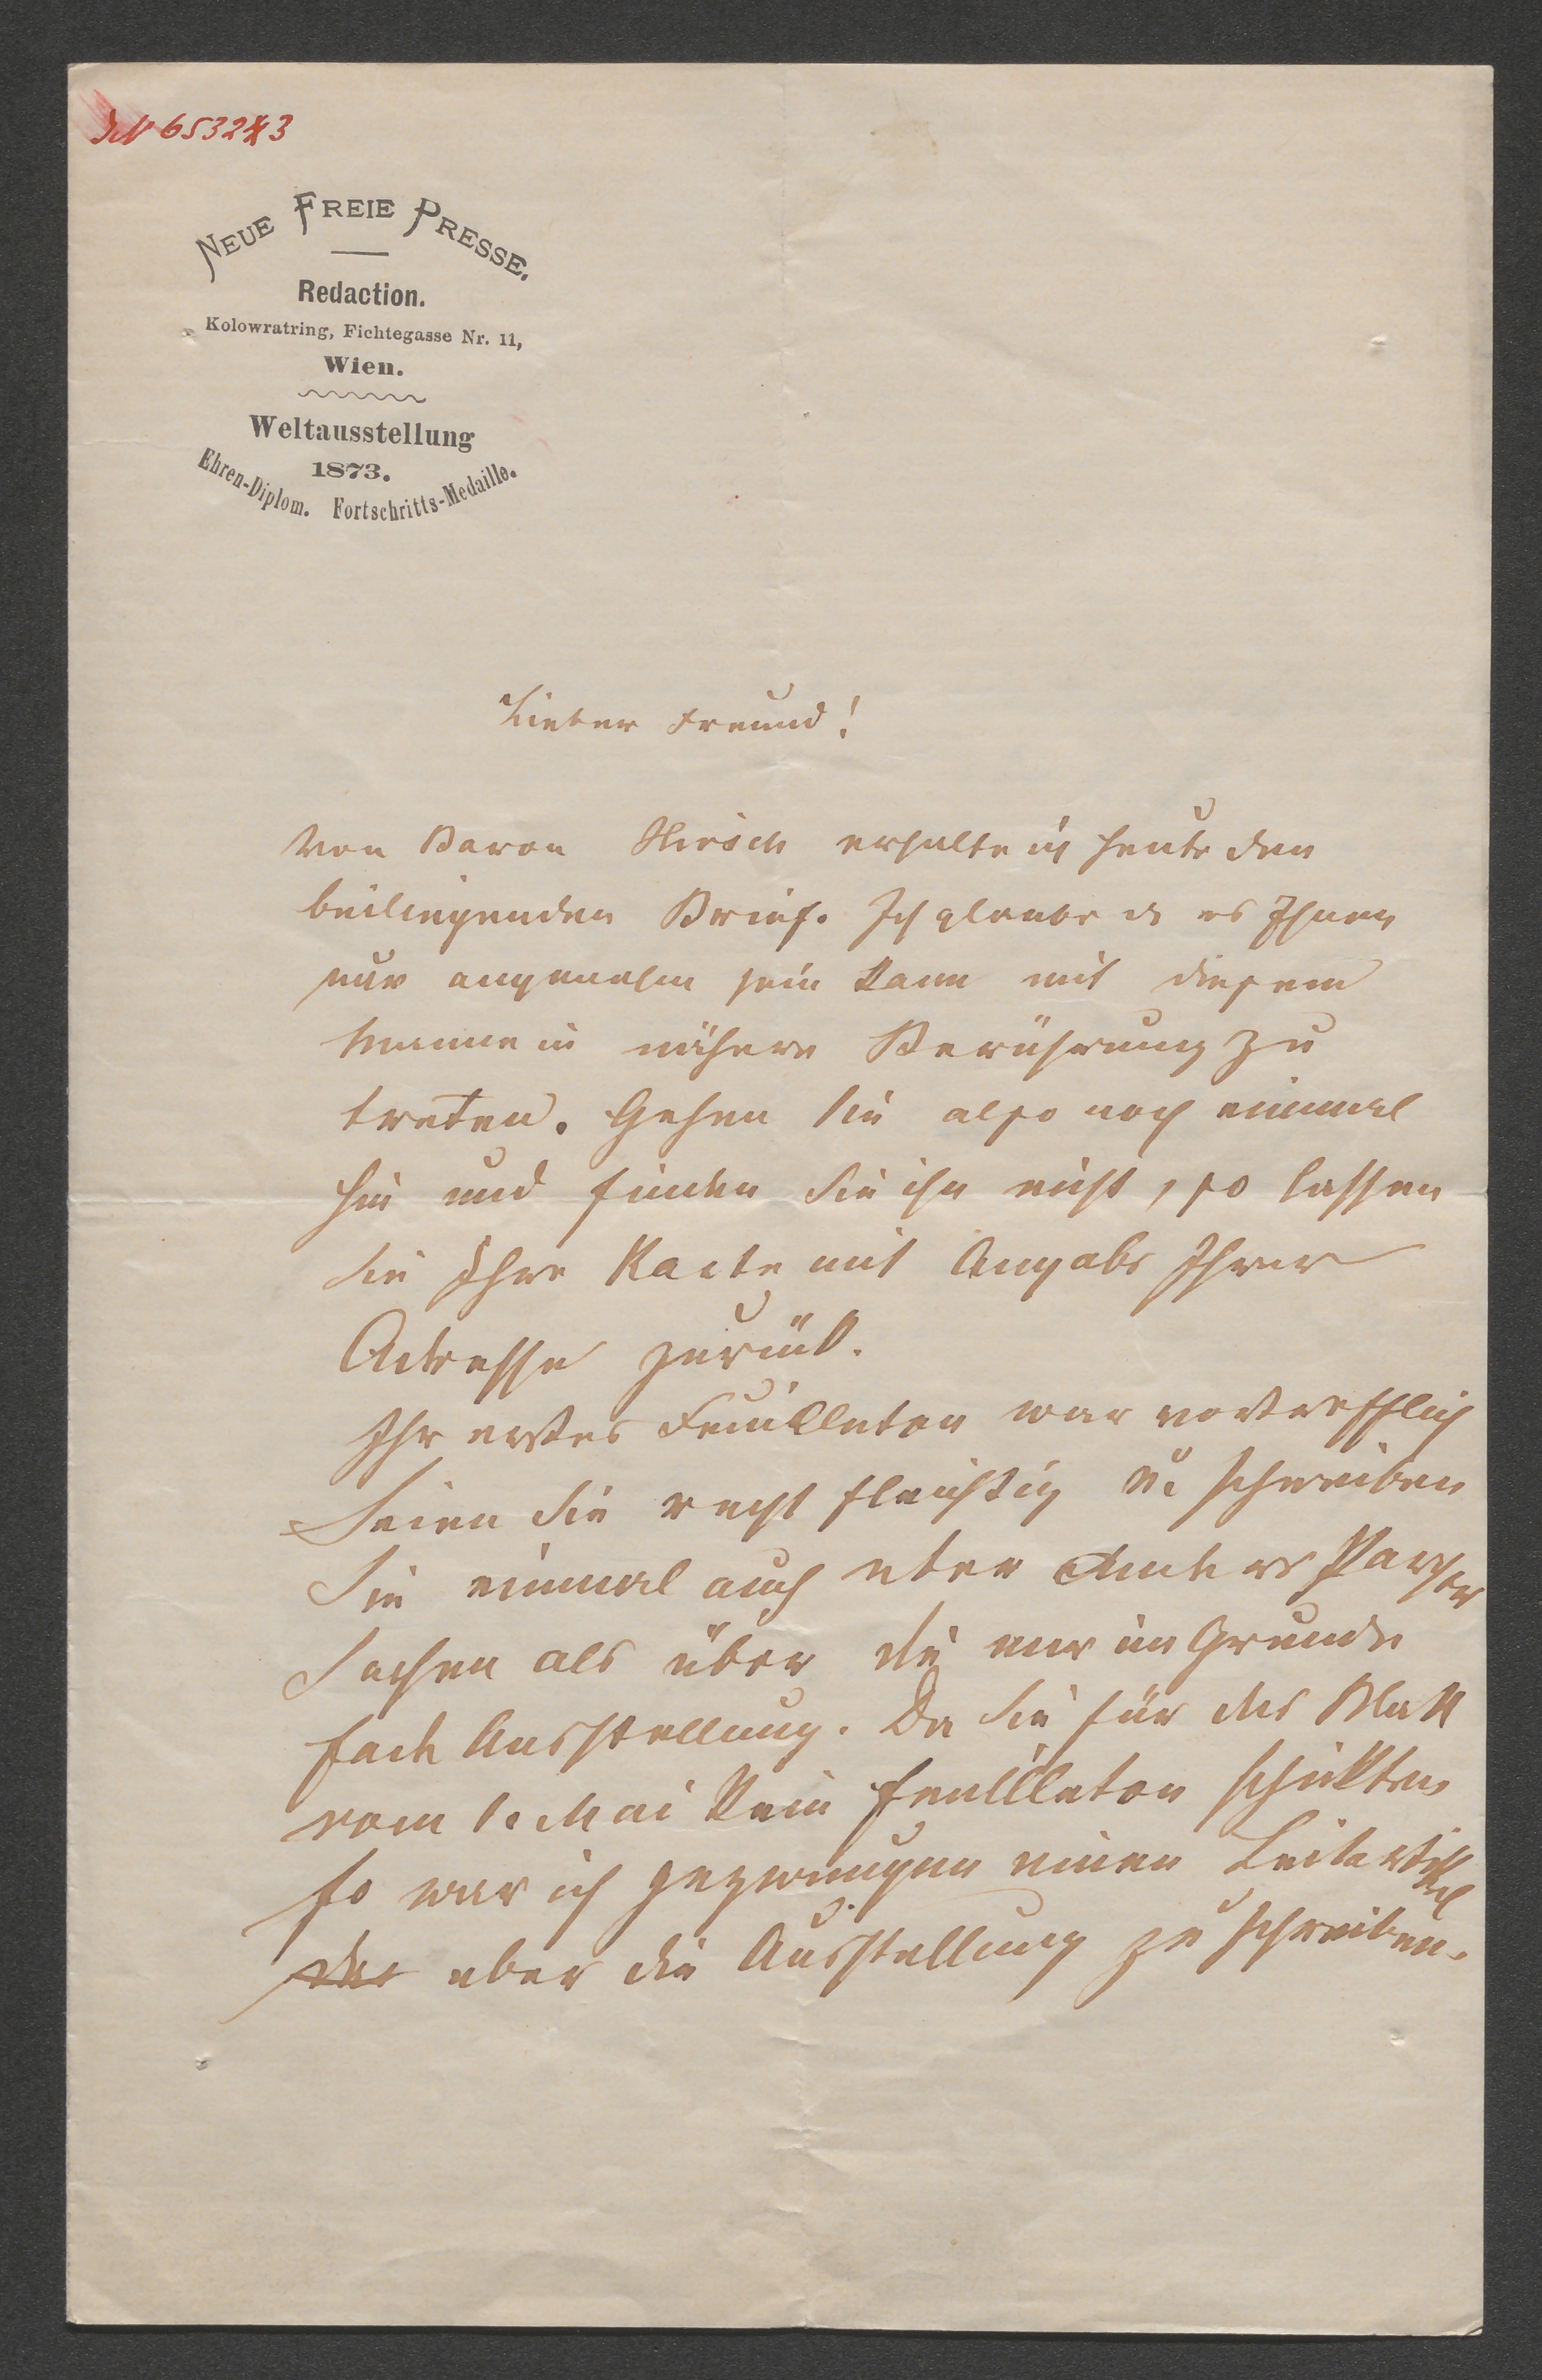 JN 65323
NEUE FREIE PRESSE.
Redaction.
Kolowratring, Fichtegasse Nr. 11,
Wien.
Weltausstellung
1873.
Ehren-Diplom. Fortschritts-Medaille.
Lieber Freund!
Von Baron Hirsch erhalte ich heute den
beiliegenden Brief. Ich glaube es Ihnen
nur angenehm sein kann mit diesem
Manne in nähere Berührung zu
treten. Gehen Sie also noch einmal
hin und finden Sie ihn nicht, so lassen
Sie Ihre Karte mit Angabe Ihrer
Adresse zurück.
Ihr erstes Feuilleton war vortrefflich
Seien Sie recht fleißig u. schreiben
Sie einmal auch über andere Pariser
Sachen als über die nur im Grunde
fade Ausstellung. Da Sie für das Blatt
vom 1. Mai kein Feuilleton schickten
so war ich gezwungen einen Leitartikel
über die Ausstellung zu schreiben.